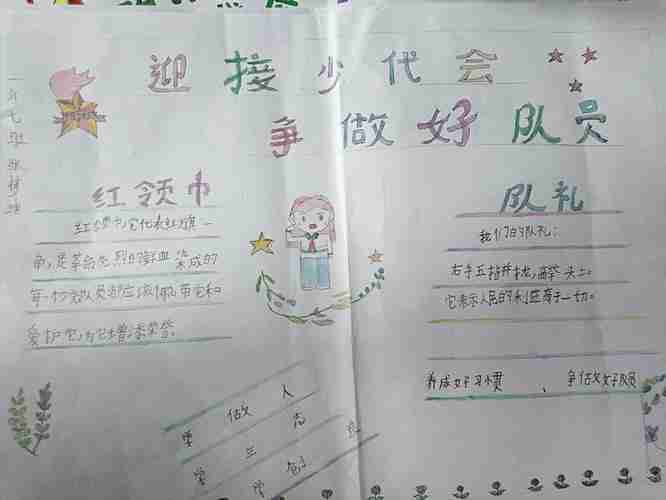 迎接少代会
争做好队员
红领巾
红领巾,它代表红旗一
角,是革命先烈的鲜血染成的
每一名少先队员都应该佩带它和
爱护它,为它增添荣誉.
队礼
我们的队礼:
右手五指并拢,高举头上.
它表示人民的利益高于一切.
养成好习惯、争做好队员
学做人
学立志
学创造